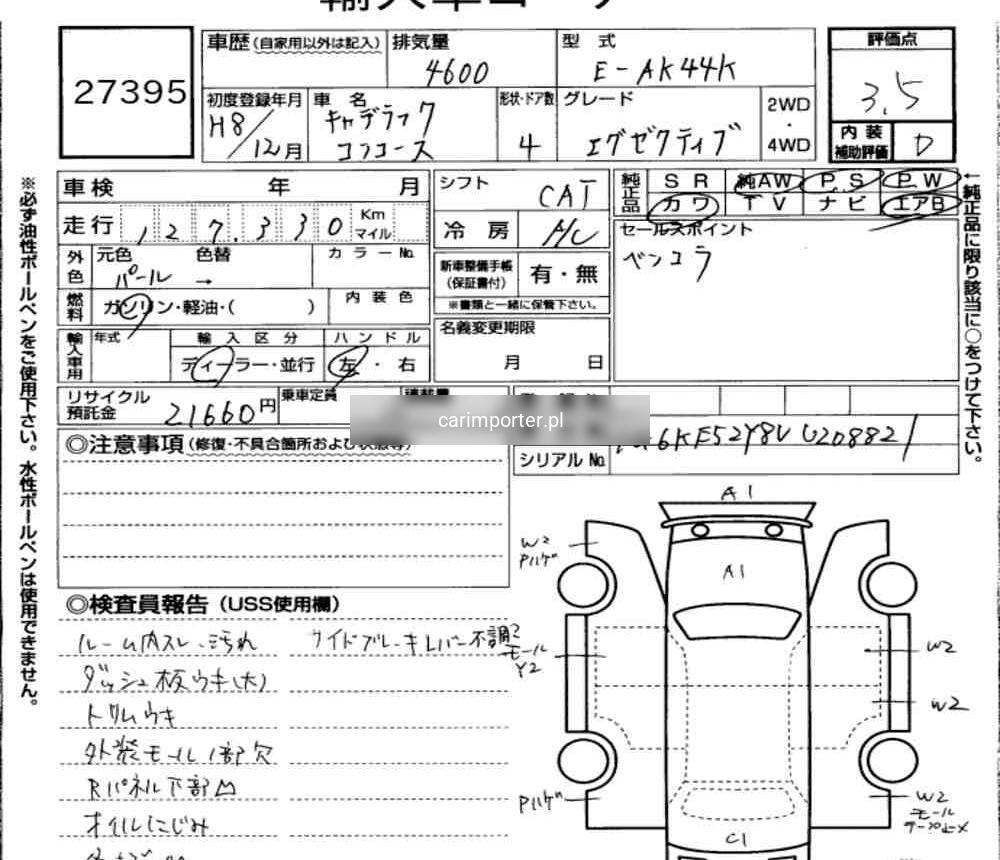 輸入車コーナー
27395
車歴(自家用以外は記入)
排気量
4600
型式
E-AK44K
評価点
3.5
初度登録年月
H8/12月
車名
キャデラック
コンコース
形状・ドア数
4
グレード
エグゼクティブ
2WD
・
4WD
内装
補助評価
D
車検 年 月
走行 127,330 Km
マイル
シフト
CAT
冷房
A/C
純正品
SR 純AW P.S P.W
カワ TV ナビ エアB
←純正品に限り該当に○をつけて下さい。
※必ず油性ボールペンをご使用下さい。水性ボールペンは使用できません。
外色
元色 色替
パール →
カラーNo.
燃料
ガソリン・軽油・( )
内装色
新車整備手帳
(保証書付)
有・無
※書類と一緒に保管下さい。
セールスポイント
ベンコラ
輸入車用
年式
輸入区分
ディーラー・並行
ハンドル
左・右
名義変更期限
月 日
リサイクル
預託金
21660円
乗車定員
carimporter.pl
シリアルNo.
6KF52Y8VU208821
◎注意事項(修復・不具合箇所および状態等)
◎検査員報告(USS使用欄)
ルーム内スレ、汚れ
サイドブレーキレバー不調
ダッシュ板ウキ(大)
トリムウキ
外装モール1部欠
Rパネル下部凹
オイルにじみ
A1
A1
W2
Pハゲ
モール
Y2
W2
W2
Pハゲ
W2
モール
テープ止メ
C1